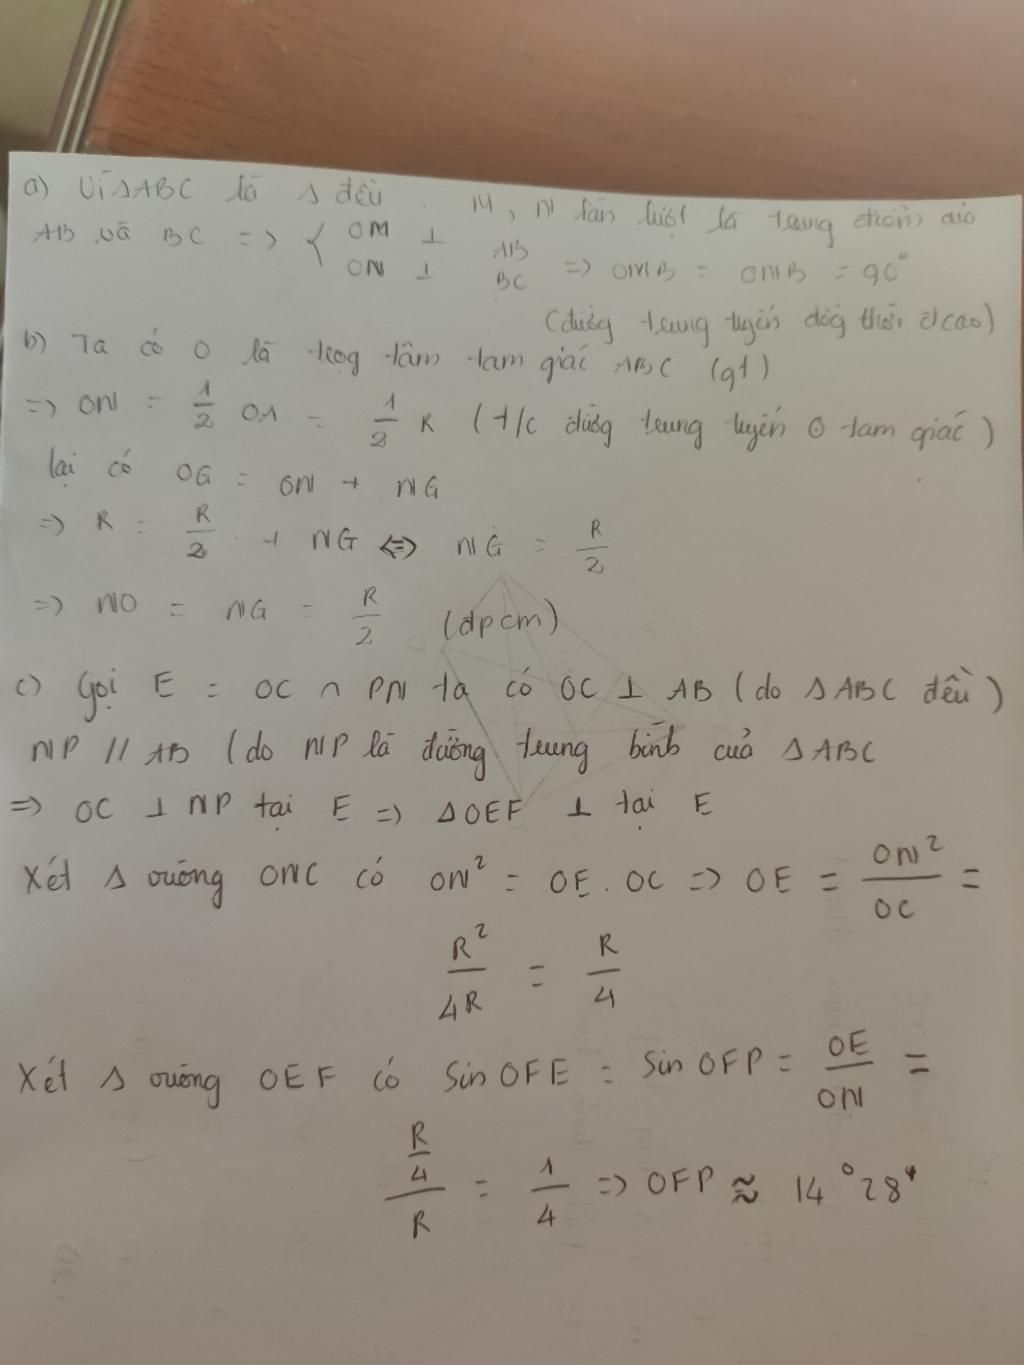 a) Vì ΔABC là Δ đều. M, N lần lượt là trung điểm của
AB và BC => { OM ⊥ AB
ON ⊥ BC => OMB = ONB = 90°
(đường trung tuyến đồg thời đcao)
b) Ta có O là trọg tâm tam giác ABC (gt)
=> ON = 1/2 OA = 1/2 R (t/c đườg trung tuyến ở tam giác)
lại có OG = ON + NG
=> R = R/2 + NG <=> NG = R/2
=> NO = NG = R/2 (đpcm)
c) Gọi E = OC ∩ PN ta có OC ⊥ AB (do ΔABC đều)
NP // AB (do NP là đường trung bình của ΔABC
=> OC ⊥ NP tại E => ΔOEF ⊥ tại E
Xét Δ vuông ONC có ON² = OE . OC => OE = ON²/OC =
R²/4R = R/4
Xét Δ vuông OEF có Sin OFE = Sin OFP = OE/ON =
R/4/R = 1/4 => OFP ≈ 14°28'